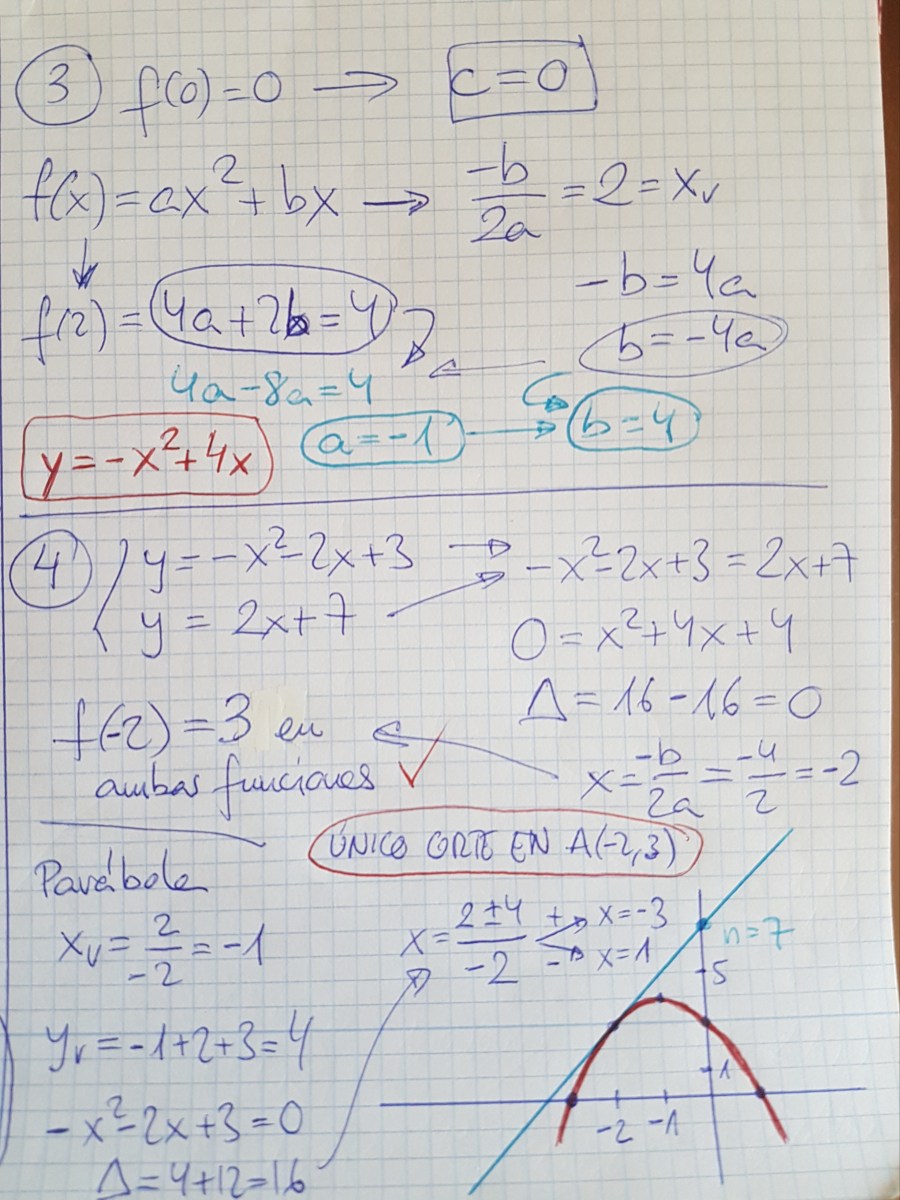 ③ f(0)=0 → c=0
f(x)=ax²+bx → -b/2a = 2 = xᵥ
-b=4a
f(2) = 4a+2b=4
b=-4a
4a-8a=4
y=-x²+4x a=-1 → b=4
④ { y=-x²-2x+3 → -x²-2x+3=2x+7
y = 2x+7
0=x²+4x+4
Δ=16-16=0
f(-2)=3 en
ambas funciones ✓
x=-b/2a=-4/2=-2
ÚNICO CORTE EN A(-2,3)
Parábola
xᵥ=2/-2=-1
x=(2±4)/-2 + → x=-3
- → x=1
n=7
5
yᵥ=-1+2+3=4
1
-x²-2x+3=0
-2 -1
Δ=4+12=16